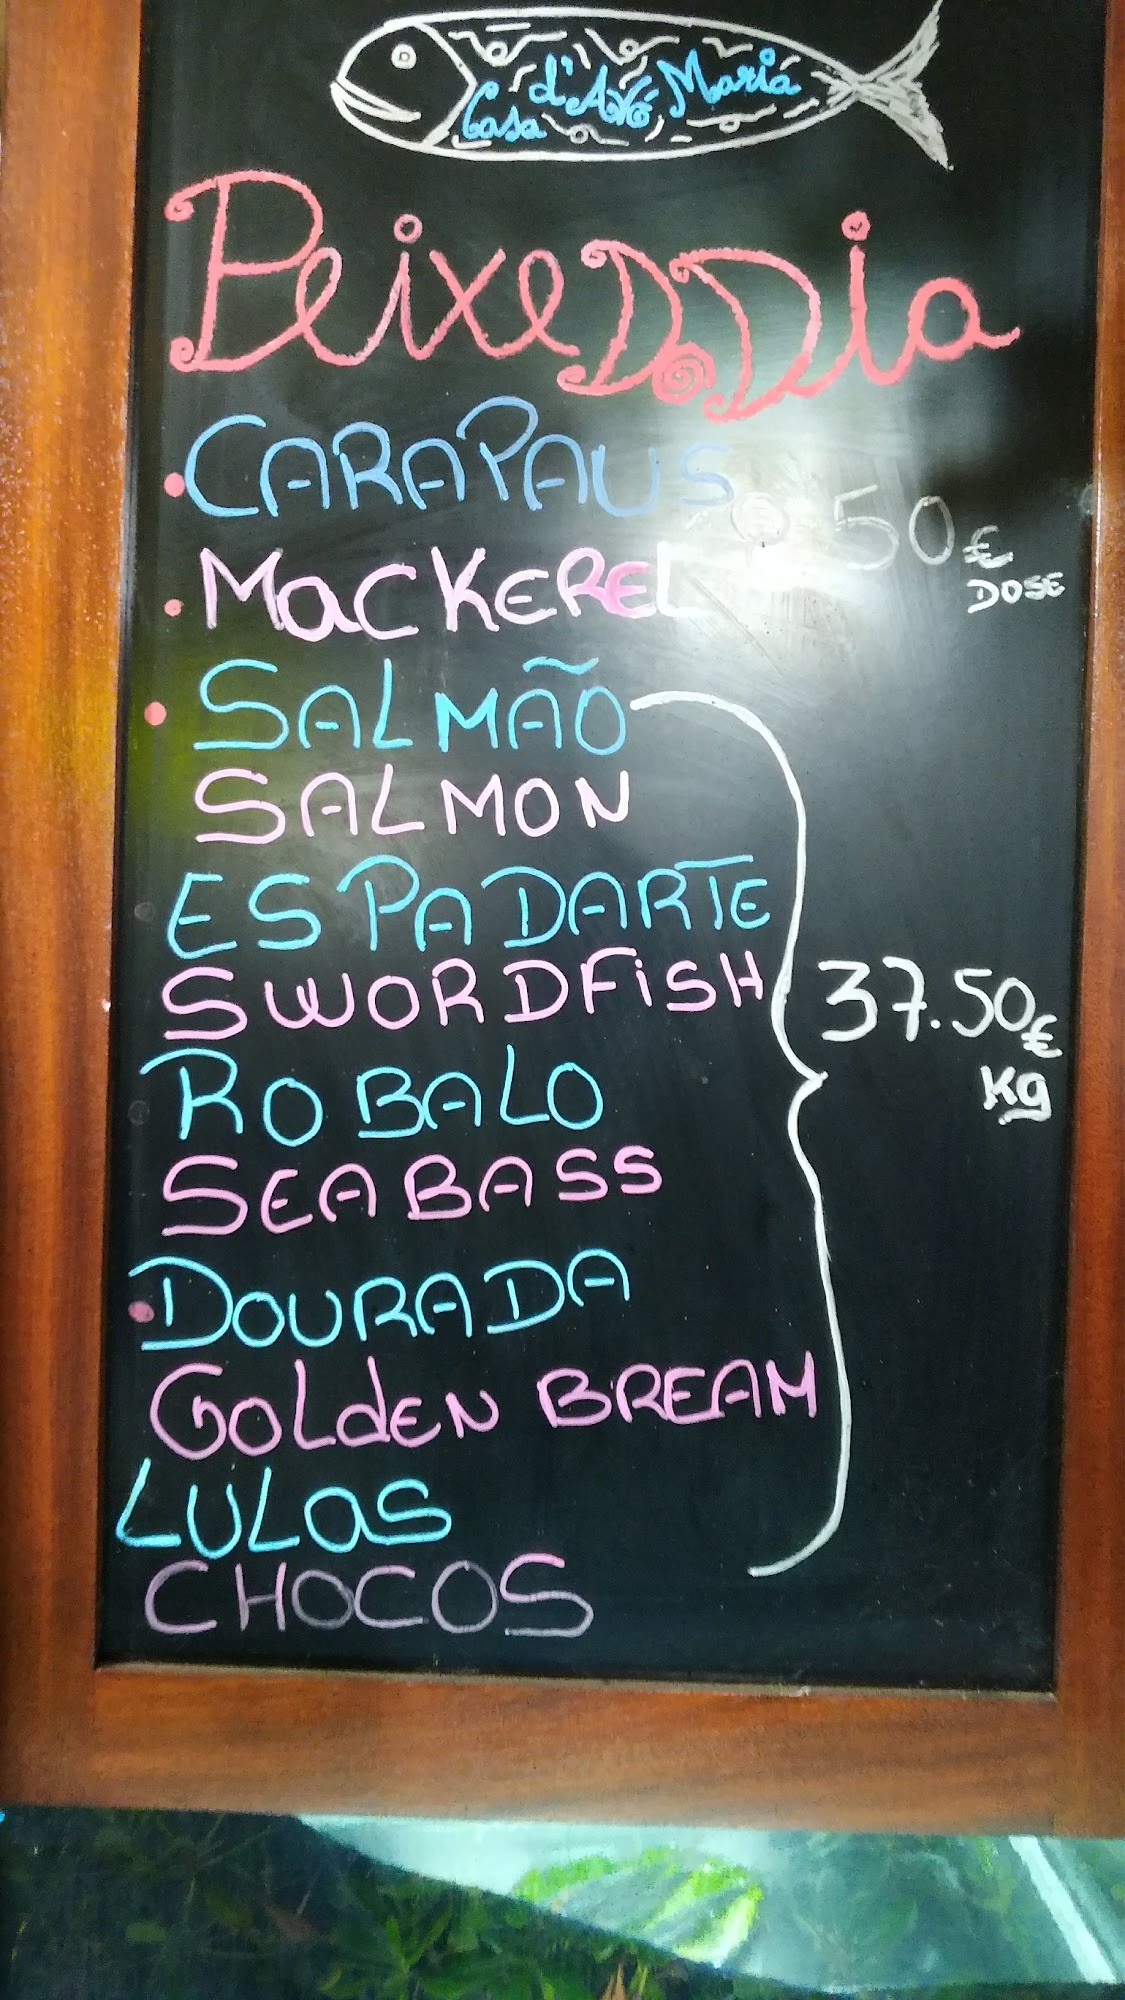 Casa d'Avé Maria
Peixe D Dia
CARAPAUS
MacKEREL
50€
DOSE
SALMÃO
SALMON
ESPADARTE
SWORDFiSH
37.50€
Kg
ROBALO
SEABASS
DOURADA
GOLdEN BREAM
LULaS
CHOCOS